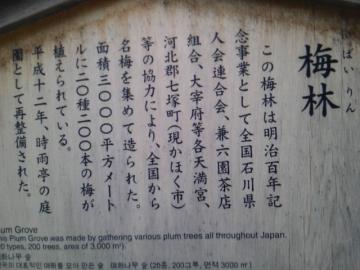 梅林
ばいりん
この梅林は明治百年記
念事業として全国石川県
人会連合会、兼六園茶店
組合、大宰府等各天満宮、
河北郡七塚町(現かほく市)
等の協力により、全国から
名梅を集めて造られた。
面積三〇〇〇平方メート
ルに二〇種二〇〇本の梅が
植えられている。
平成十二年、時雨亭の庭
園として再整備された。
lum Grove
his Plum Grove was made by gathering various plum trees all throughout Japan.
0 types, 200 trees, area of 3,000 m²).
매화나무 숲
대표적인 매화를 모아 만든 숲 매화나무 숲 (20종, 200그루, 면적 3000㎡)